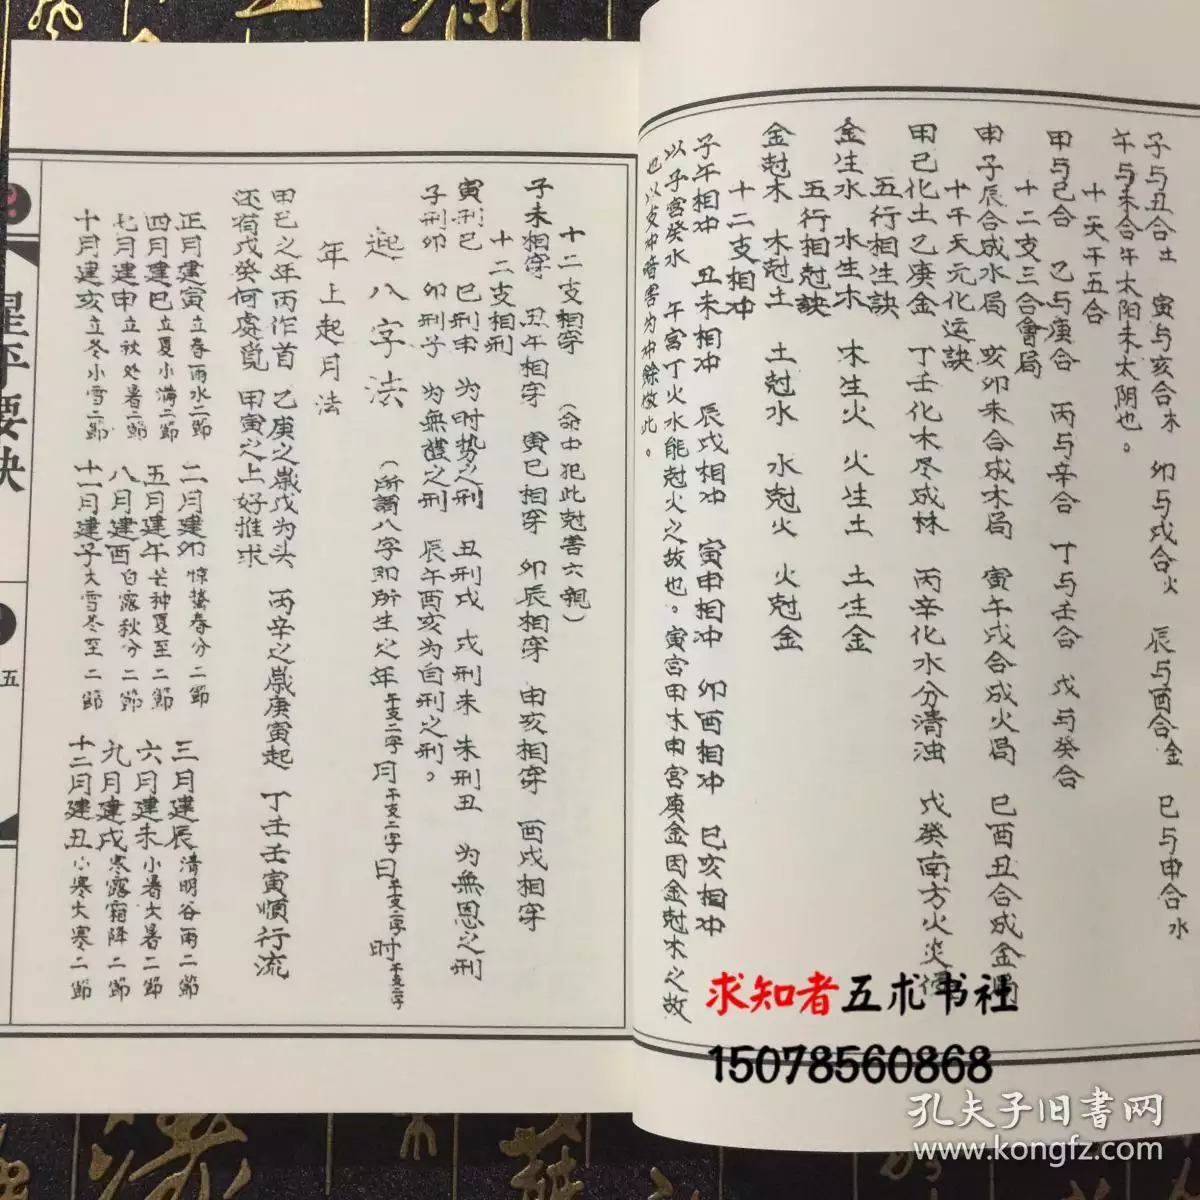 子与丑合土 寅与亥合木 卯与戌合火 辰与酉合金 巳与申合水
午与未合午太阳未太阴也。
十天干五合
甲与己合 乙与庚合 丙与辛合 丁与壬合 戊与癸合
十二支三合會局
申子辰合成水局 亥卯未合成木局 寅午戌合成火局 巳酉丑合成金局
十干天元化运訣
甲己化土乙庚金 丁壬化木尽成林 丙辛化水分清浊 戊癸南方火炎
五行相生訣
金生水 水生木 木生火 火生土 土生金
五行相尅訣
金尅木 木尅土 土尅水 水尅火 火尅金
十二支相冲
子午相冲 丑未相冲 辰戌相冲 寅申相冲 卯酉相冲 巳亥相冲
以子宮癸水 午宮丁火水能尅火之故也。寅宮甲木申宮庚金因金尅木之故
也以支冲暗害为冲餘倣此。
十二支相穿 (命中犯此尅害六親)
子未相穿 丑午相穿 寅巳相穿 卯辰相穿 申亥相穿 酉戌相穿
十二支相刑
寅刑巳 巳刑申 为时势之刑 丑刑戌 戌刑未 未刑丑 为無恩之刑
子刑卯 卯刑子 为無禮之刑 辰午酉亥为自刑之刑。
起八字法 (所謂八字即所生之年干支二字月干支二字日干支二字时干支二字
年上起月法
甲己之年丙作首 乙庚之歲戊为头 丙辛之歲庚寅起 丁壬壬寅順行流
还有戊癸何處覓 甲寅之上好推求
正月建寅立春雨水二節 二月建卯惊蟄春分二節 三月建辰清明谷雨二節
四月建巳立夏小滿二節 五月建午芒种夏至二節 六月建未小暑大暑二節
七月建申立秋处暑二節 八月建酉白露秋分二節 九月建戌寒露霜降二節
十月建亥立冬小雪二節 十一月建子大雪冬至二節 十二月建丑小寒大寒二節
星平要訣
五
求知者五术书社
15078560868
孔夫子旧書网
www.kongfz.com